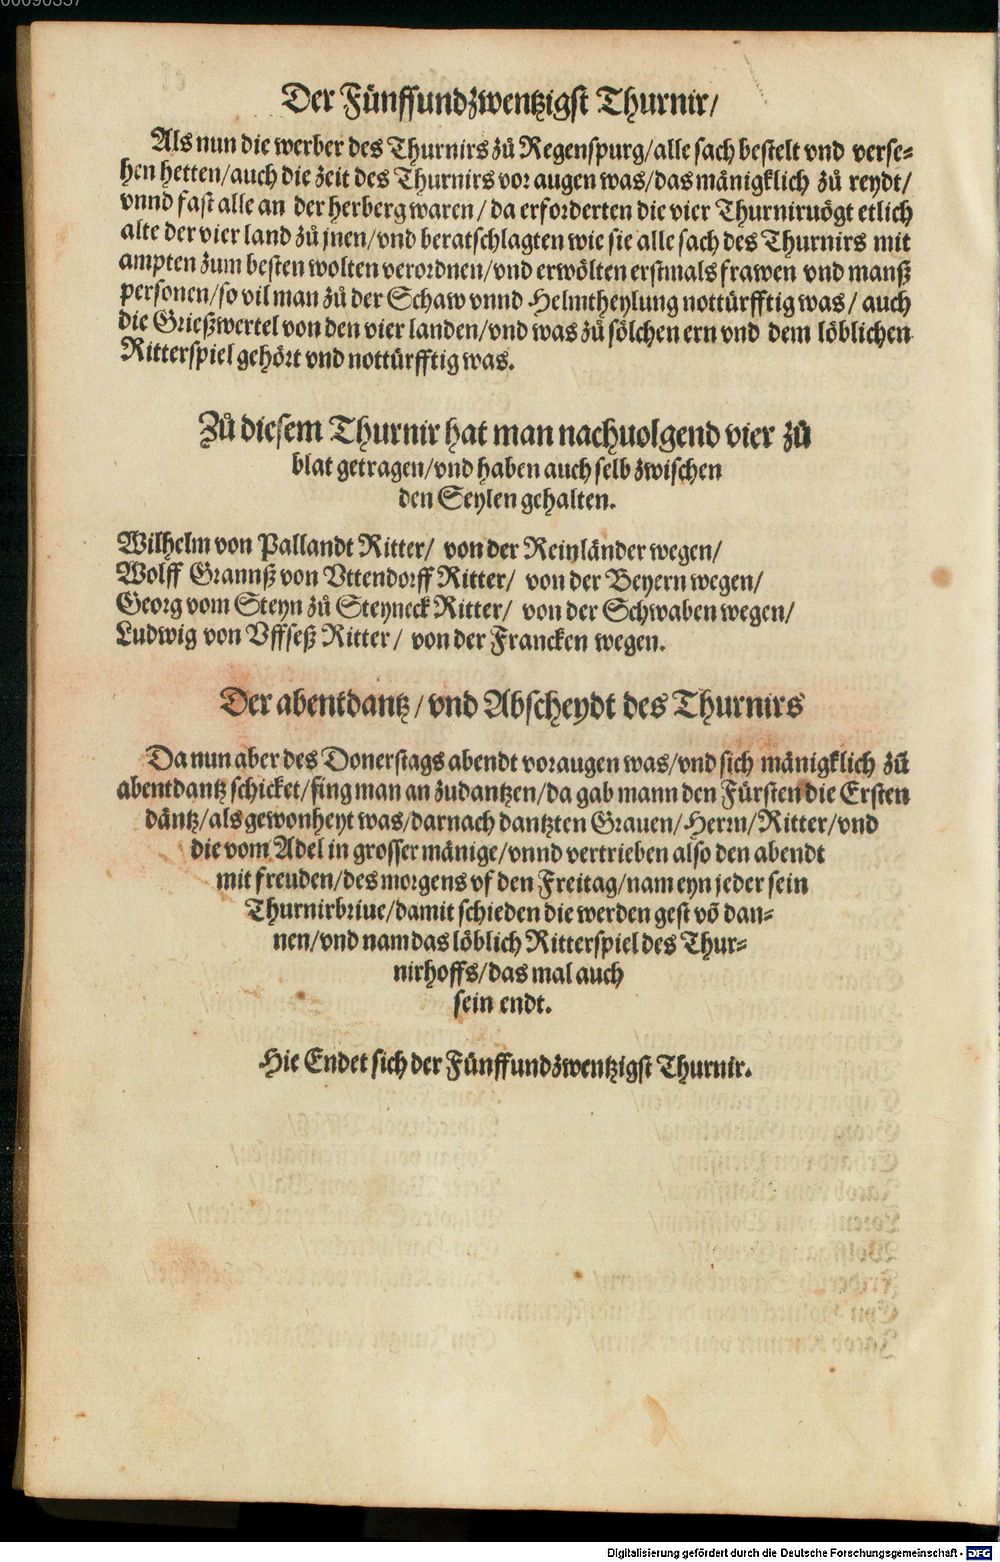 00090357
Der Fünffundzwentzigst Thurnir/
Als nun die werber des Thurnirs zů Regenspurg/alle sach bestelt vnd verse-
hen hetten/auch die zeit des Thurnirs vor augen was/das mänigklich zů reydt/
vnnd fast alle an der herberg waren/da erforderten die vier Thurniruögt etlich
alte der vier land zů jnen/vnd beratschlagten wie sie alle sach des Thurnirs mit
ampten zum besten wolten verordnen/vnd erwölten erstmals frawen vnd manß
personen/so vil man zů der Schaw vnnd Helmtheylung nottürfftig was/ auch
die Grießwertel von den vier landen/vnd was zů sölchen ern vnd dem löblichen
Ritterspiel gehört vnd nottürfftig was.
Zů diesem Thurnir hat man nachuolgend vier zů
blat getragen/vnd haben auch selb zwischen
den Seylen gehalten.
Wilhelm von Pallandt Ritter/ von der Reinländer wegen/
Wolff Grannß von Vttendorff Ritter/ von der Beyern wegen/
Georg vom Steyn zů Steyneck Ritter/ von der Schwaben wegen/
Ludwig von Vffseß Ritter/ von der Francken wegen.
Der abentdantz/vnd Abscheydt des Thurnirs
Da nun aber des Donerstags abendt vor augen was/vnd sich mänigklich zů
abentdantz schicket/fing man an zudantzen/da gab mann den Fürsten die Ersten
däntz/als gewonheyt was/darnach dantzten Grauen/Herrn/Ritter/vnd
die vom Adel in grosser mänige/vnnd vertrieben also den abendt
mit freuden/des morgens vf den Freitag/nam eyn jeder sein
Thurnirbriue/damit schieden die werden gest võ dan-
nen/vnd nam das löblich Ritterspiel des Thur-
nirhoffs/das mal auch
sein endt.
Hie Endet sich der Fünffundzwentzigst Thurnir.
Digitalisierung gefördert durch die Deutsche Forschungsgemeinschaft - DFG